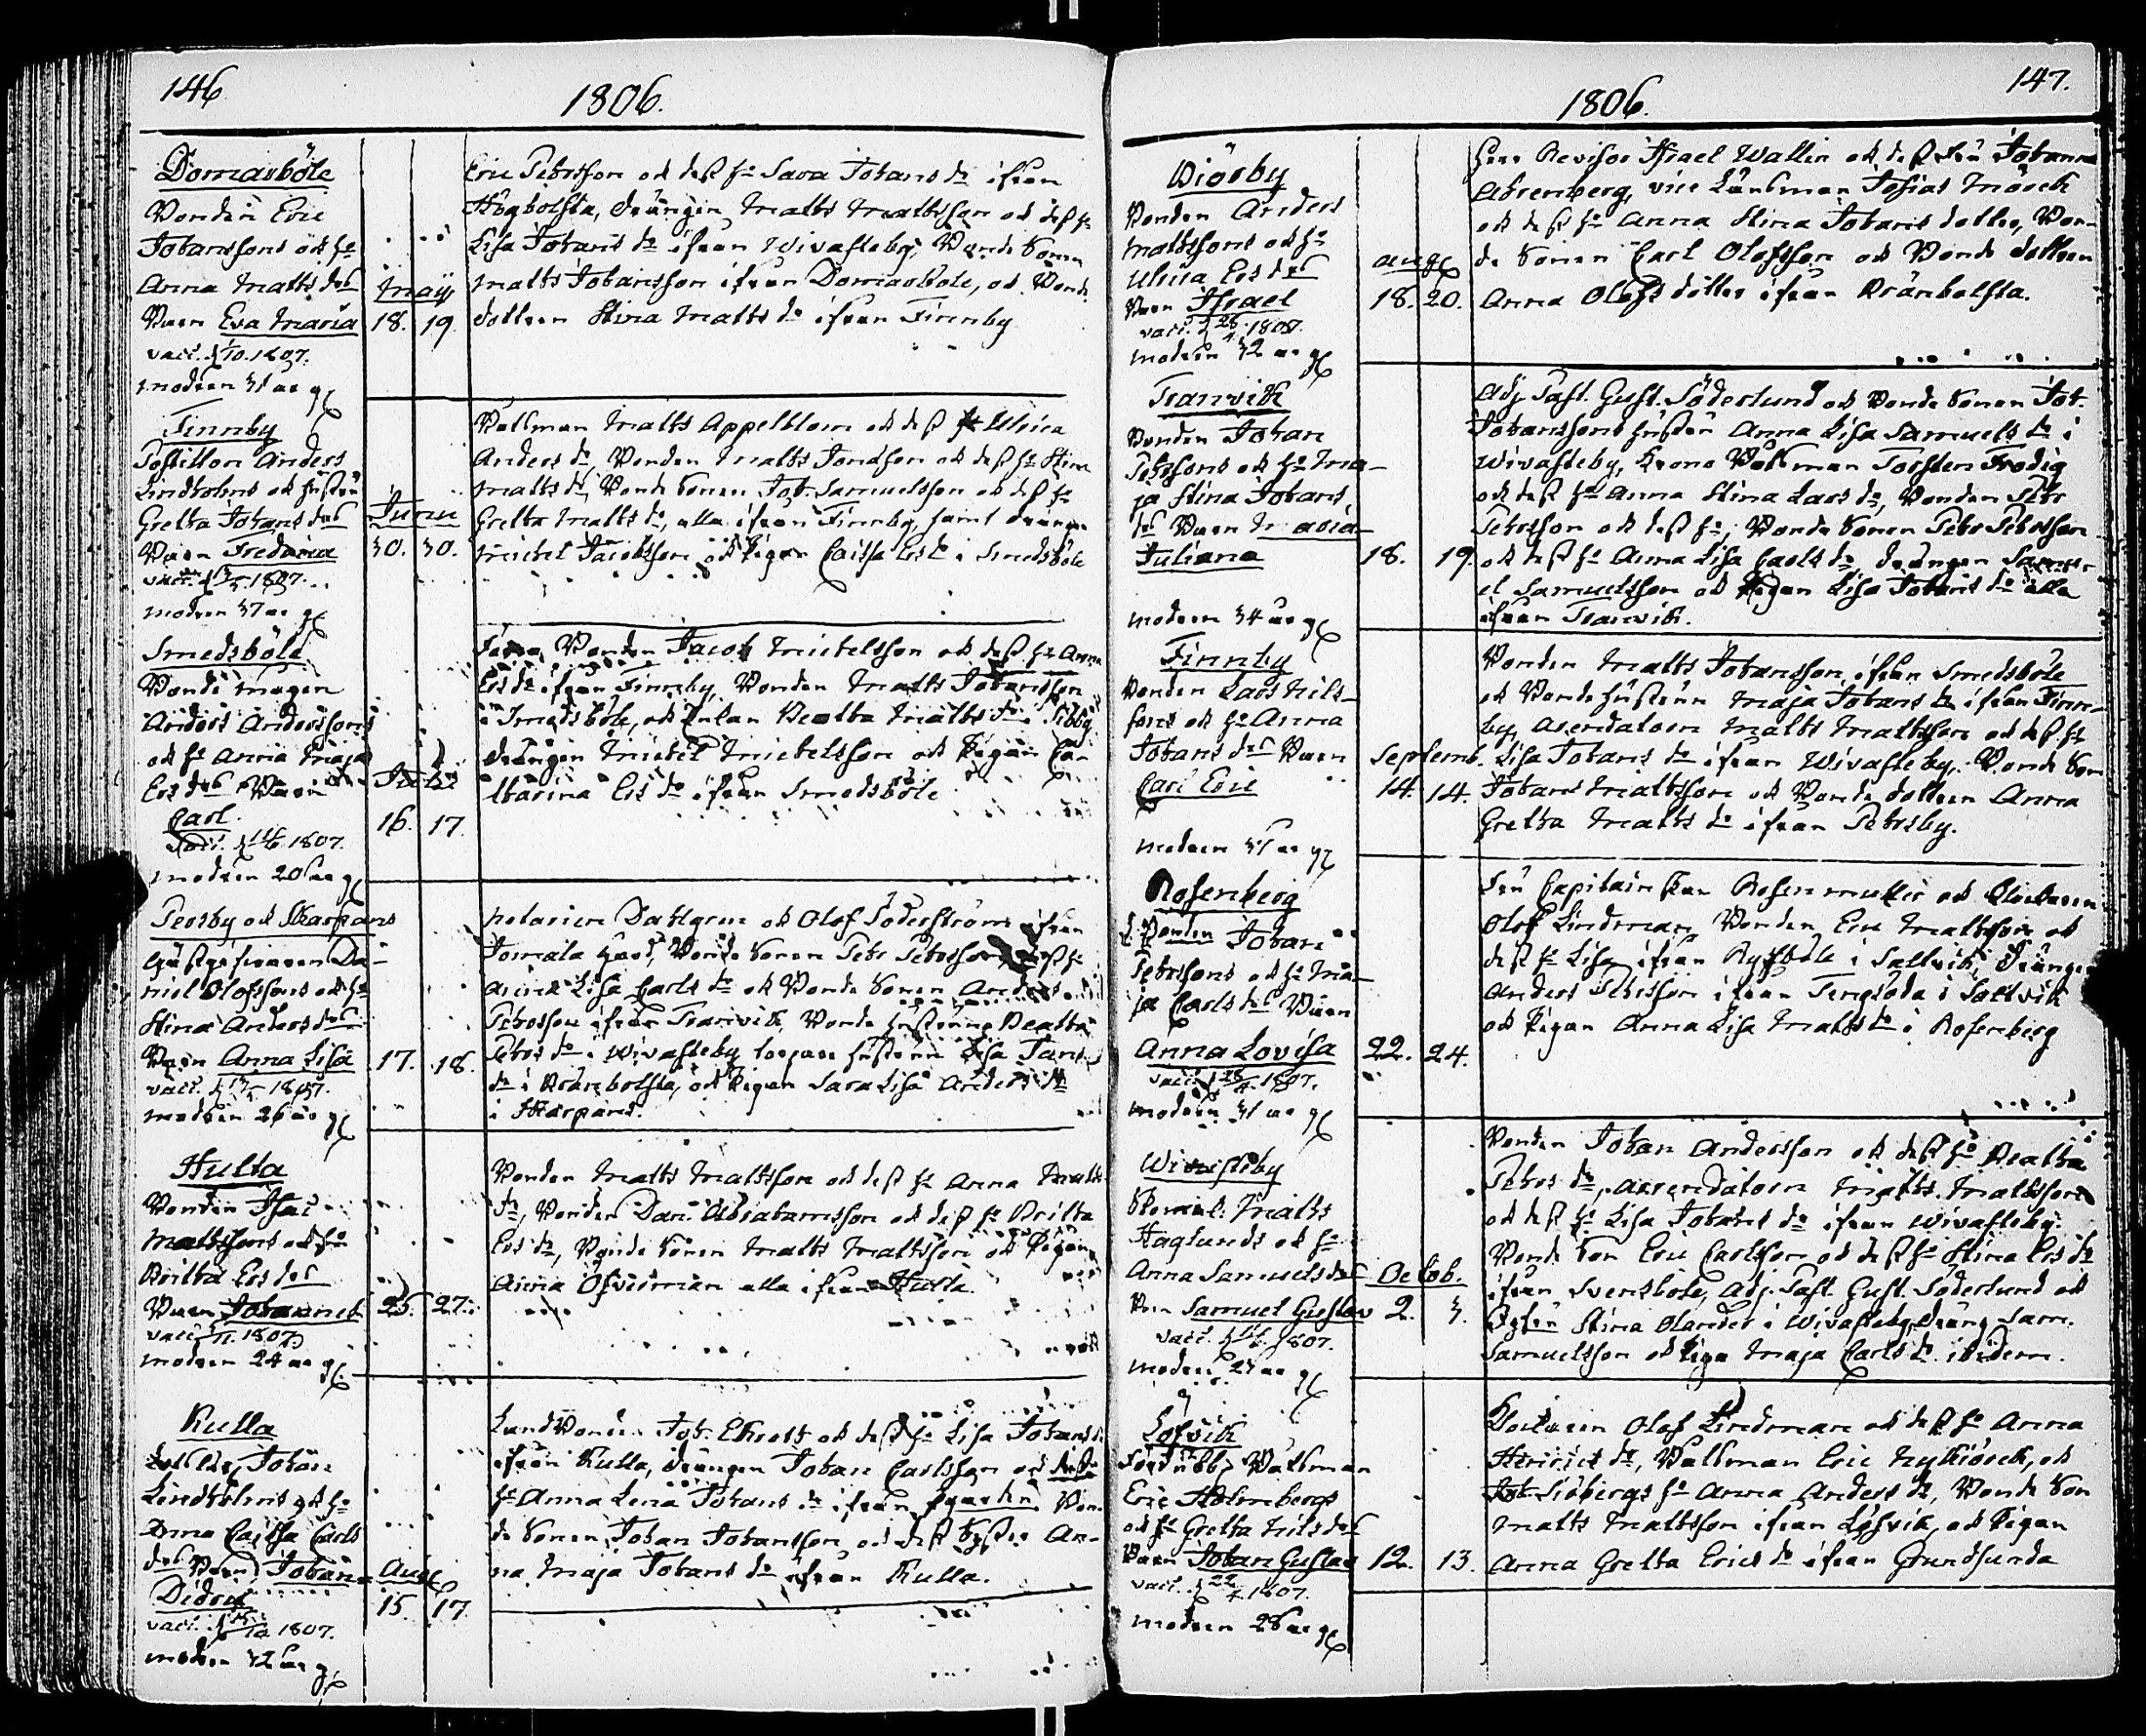 146
1806.
Domarböle
Bonden Eric
Johanssons och h:u
Anna Matts dot:r
Barn Eva Maria
vacc. d 1/10. 1807.
modren 31 år g:l
May
18. 19.
Eric Pehrsson och dess h:u Sara Johans d:r ifrån
Högbolsta, drängen Matts Mattsson och dess h:u
Lisa Johans d:r ifrån Wivasteby, Bonde Sonen
Matts Johansson ifrån Domarböle, och Bonde
dottren Stina Matts d:r ifrån Finnby
Finnby
Postillon Anders
Lindholms och hustru
Gretta Johans dot:r
Barn Fredrica
vacc. 1807.
modren 37 år g:l
Junii
30. 30.
Båtsman Matts Appelblom och dess h:u Ulrica
Anders d:r, Bonden Matts Jonasson och dess h:u Stina
Matts d:r, Bonde Sonen Joh. Samuelsson och dess h:u
Gretta Matts d:r, alla ifrån Finnby, samt drängen
Michel Jacobsson och Pigan Caissa Ers d:r i Smedsböle
Smedsböle
Bonde mågen
Anders Anderssons
och h:u Anna Maja
Ers dot:r Barn
Carl
vacc. d 1807.
modren 20 år g:l
Julii
16. 17.
Bonden Jacob Michelsson och dess h:u Anna
Ers d:r ifrån Finnby, Bonden Matts Johansson
i Smedsböle, och Enkan Beatta Matts d:r i Sibby
drängen Michel Michelsson och Pigan Ca-
tharina Ers d:r ifrån Smedsböle
Persby och Skarpans
Gästgifvaren Da-
niel Olofssons och h:u
Stina Anders dot:r
Barn Anna Lisa
vacc. d 1807.
modren 26 år g:l
17. 18.
Notarien Dahlgren och Olof Söderström ifrån
Jomala Gård, Bonde Sonen Pehr Pehrsson, dess h:u
Anna Lisa Carls d:r och Bonde Sonen Anders
Pehrsson ifrån Tranvik, Bonde hustrun Beatta
Pehrs d:r i Wivasteby torpare hustrun Lisa Jans
d:r i Kränbolsta, och Pigan Sara Lisa Anders d:r
i Skarpans.
Hulta
Bonden Isac
Mattssons och h:u
Britta Ers dot:r
Barn Johannes
vacc. 1807.
modren 24 år g:l
25. 27.
Bonden Matts Mattsson och dess h:u Anna Matts
d:r, Bonden Dan. Abrahamsson och dess h:u Britta
Ers d:r, Bonde Sonen Matts Mattsson och Pigan
Anna Öfverman alla ifrån Hulta.
Kulla
Johan
Lindholms och h:u
Anna Caissa Carls
dot:r Barn Johan
Didric
vacc. 1807.
modren 32 år g:l
Aug:
15. 17.
Landbonden Joh. Ekrots och dess h:u Lisa Johans d:r
ifrån Kulla, drängen Johan Carlsson och
h:u Anna Lena Johans d:r ifrån Bon-
de Sonen Johan Johansson och dess Syster An-
na Maja Johans d:r ifrån Kulla.
147.
1806.
Biörby
Bonden Anders
Mattssons och h:u
Ulrica Ers dot:r
Barn Israel
vacc. d 28/4 1807.
modren 32 år g:l
Aug:
18. 20.
Herr Revisor Israel Wallin och dess Fru Johanna
Ahrenberg, vice Länsman Josias Mörck
och dess h:u Anna Stina Johans dotter, Bon-
de Sonen Carl Olofsson och Bonde dottren
Anna Olofs dotter ifrån Kränbolsta.
Tranvik
Bonden Johan
Pehrssons och h:u Ma-
ja Stina Johans
dot:r Barn Maria
Juliana
modren 34 år g:l
18. 19.
Adj. Past. Gust. Söderlund och Bonde Sonen Joh.
Johanssons hustru Anna Lisa Samuels d:r i
Wivasteby, Krono Båtsman Torsten Frodig
och dess h:u Anna Stina Lars d:r, Bonden Pehr
Pehrsson och dess h:u, Bonde Sonen Pehr Pehrsson
och dess h:u Anna Lisa Carls d:r, drängen Samu-
el Samuelsson och Pigan Lisa Johans d:r alla
ifrån Tranvik.
Finnby
Bonden Lars Nils-
sons och h:u Anna
Johans dot:r Barn
Carl Eric
modren 31 år g:l
Septemb.
14. 14.
Bonden Matts Johansson ifrån Smedsböle
och Bonde hustrun Maja Johans d:r ifrån Finn-
by, Arendatorn Matts Mattsson och dess h:u
Lisa Johans d:r ifrån Wivasteby, Bonde Son
Johan Mattsson och Bonde dottren Anna
Gretta Matts d:r ifrån Pehrsby.
Rosenberg
L. Bonden Johan
Pehrssons och h:u Ma-
ja Carls dot:r Barn
Anna Lovisa
vacc. d 28/4 1807.
modren 31 år g:l
22. 24.
Fru Capitainskan Rosenmüller och Klockaren
Olof Lindeman, Bonden Eric Mattsson och
dess h:u Lisa ifrån Ryssböle i Saltvik, Drängen
Anders Pehrsson ifrån Tengsöda i Saltvik
och Pigan Anna Lisa Matts d:r i Rosenberg
Wivasteby
Skomak: Matts
Haglunds och h:u
Anna Samuels dot:r
Barn Samuel Gustav
vacc. d 1807.
modren 27 år g:l
Octob.
2. 3.
Bonden Johan Andersson och dess h:u Beatha
Pehrs d:r, Arrendatorn Matts Mattsson
och dess h:u Lisa Johans d:r ifrån Wivasteby.
Bonde Son Eric Carlsson och dess h:u Stina Ers d:r
ifrån Svensböle, Adj. Past. Gust. Söderlund och
Stina Olander i Wivasteby, dräng Sam.
Samuelsson och Piga Maja Carls d:r ibidem.
Löfvik
Fördubb: Båtsman
Eric Holmbergs
och h:u Gretta Nils dot:r
Barn Johan Gustav
vacc. d 22/4 1807.
modren 28 år g:l
12. 13.
Klockaren Olof Lindeman och dess h:u Anna
Henrics d:r, Båtsman Eric Nykiörck, och
Joh. Siöbergs h:u Anna Anders d:r, Bonde Son
Matts Mattsson ifrån Löfvik, och Pigan
Anna Gretta Erics d:r ifrån Grundsunda